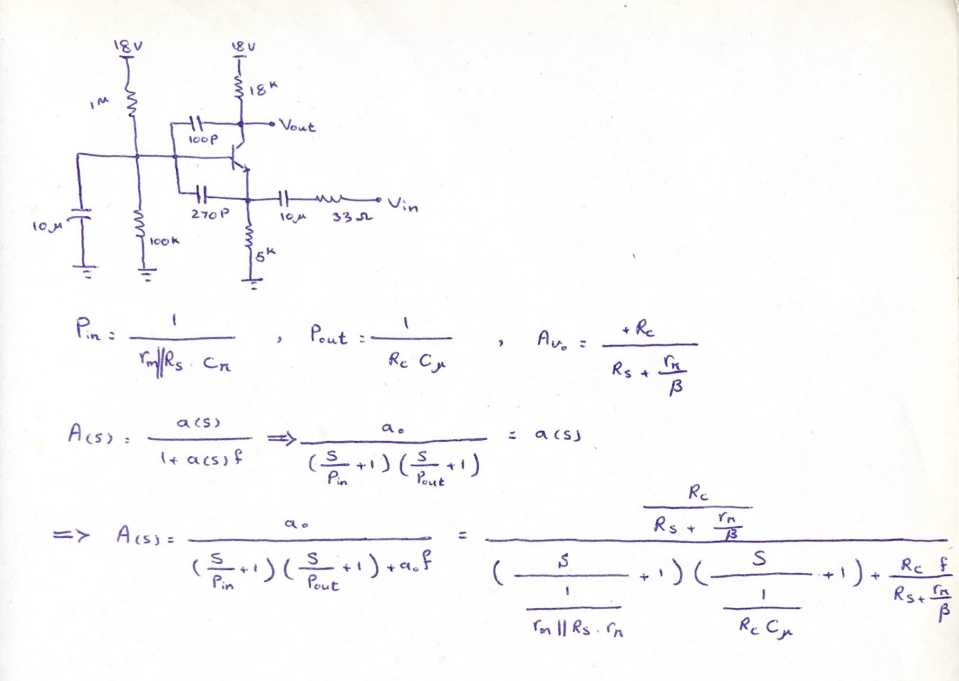 18V 18V
1M 18K
Vout
100P
Vin
270P 10μ 33Ω
10μ
100K
5K
Pin = 1 / (rm||Rs . Cπ) , Pout = 1 / (Rc Cμ) , Av₀ = +Rc / (Rs + rπ/β)
A(s) = a(s) / (1 + a(s) f) => a₀ / ((S/Pin + 1) (S/Pout + 1)) = a(s)
=> A(s) = a₀ / ((S/Pin + 1) (S/Pout + 1) + a₀ f) = (Rc / (Rs + rπ/β)) / ((S / (1 / (rm || Rs . rπ)) + 1) (S / (1 / (Rc Cμ)) + 1) + Rc f / (Rs + rπ/β))